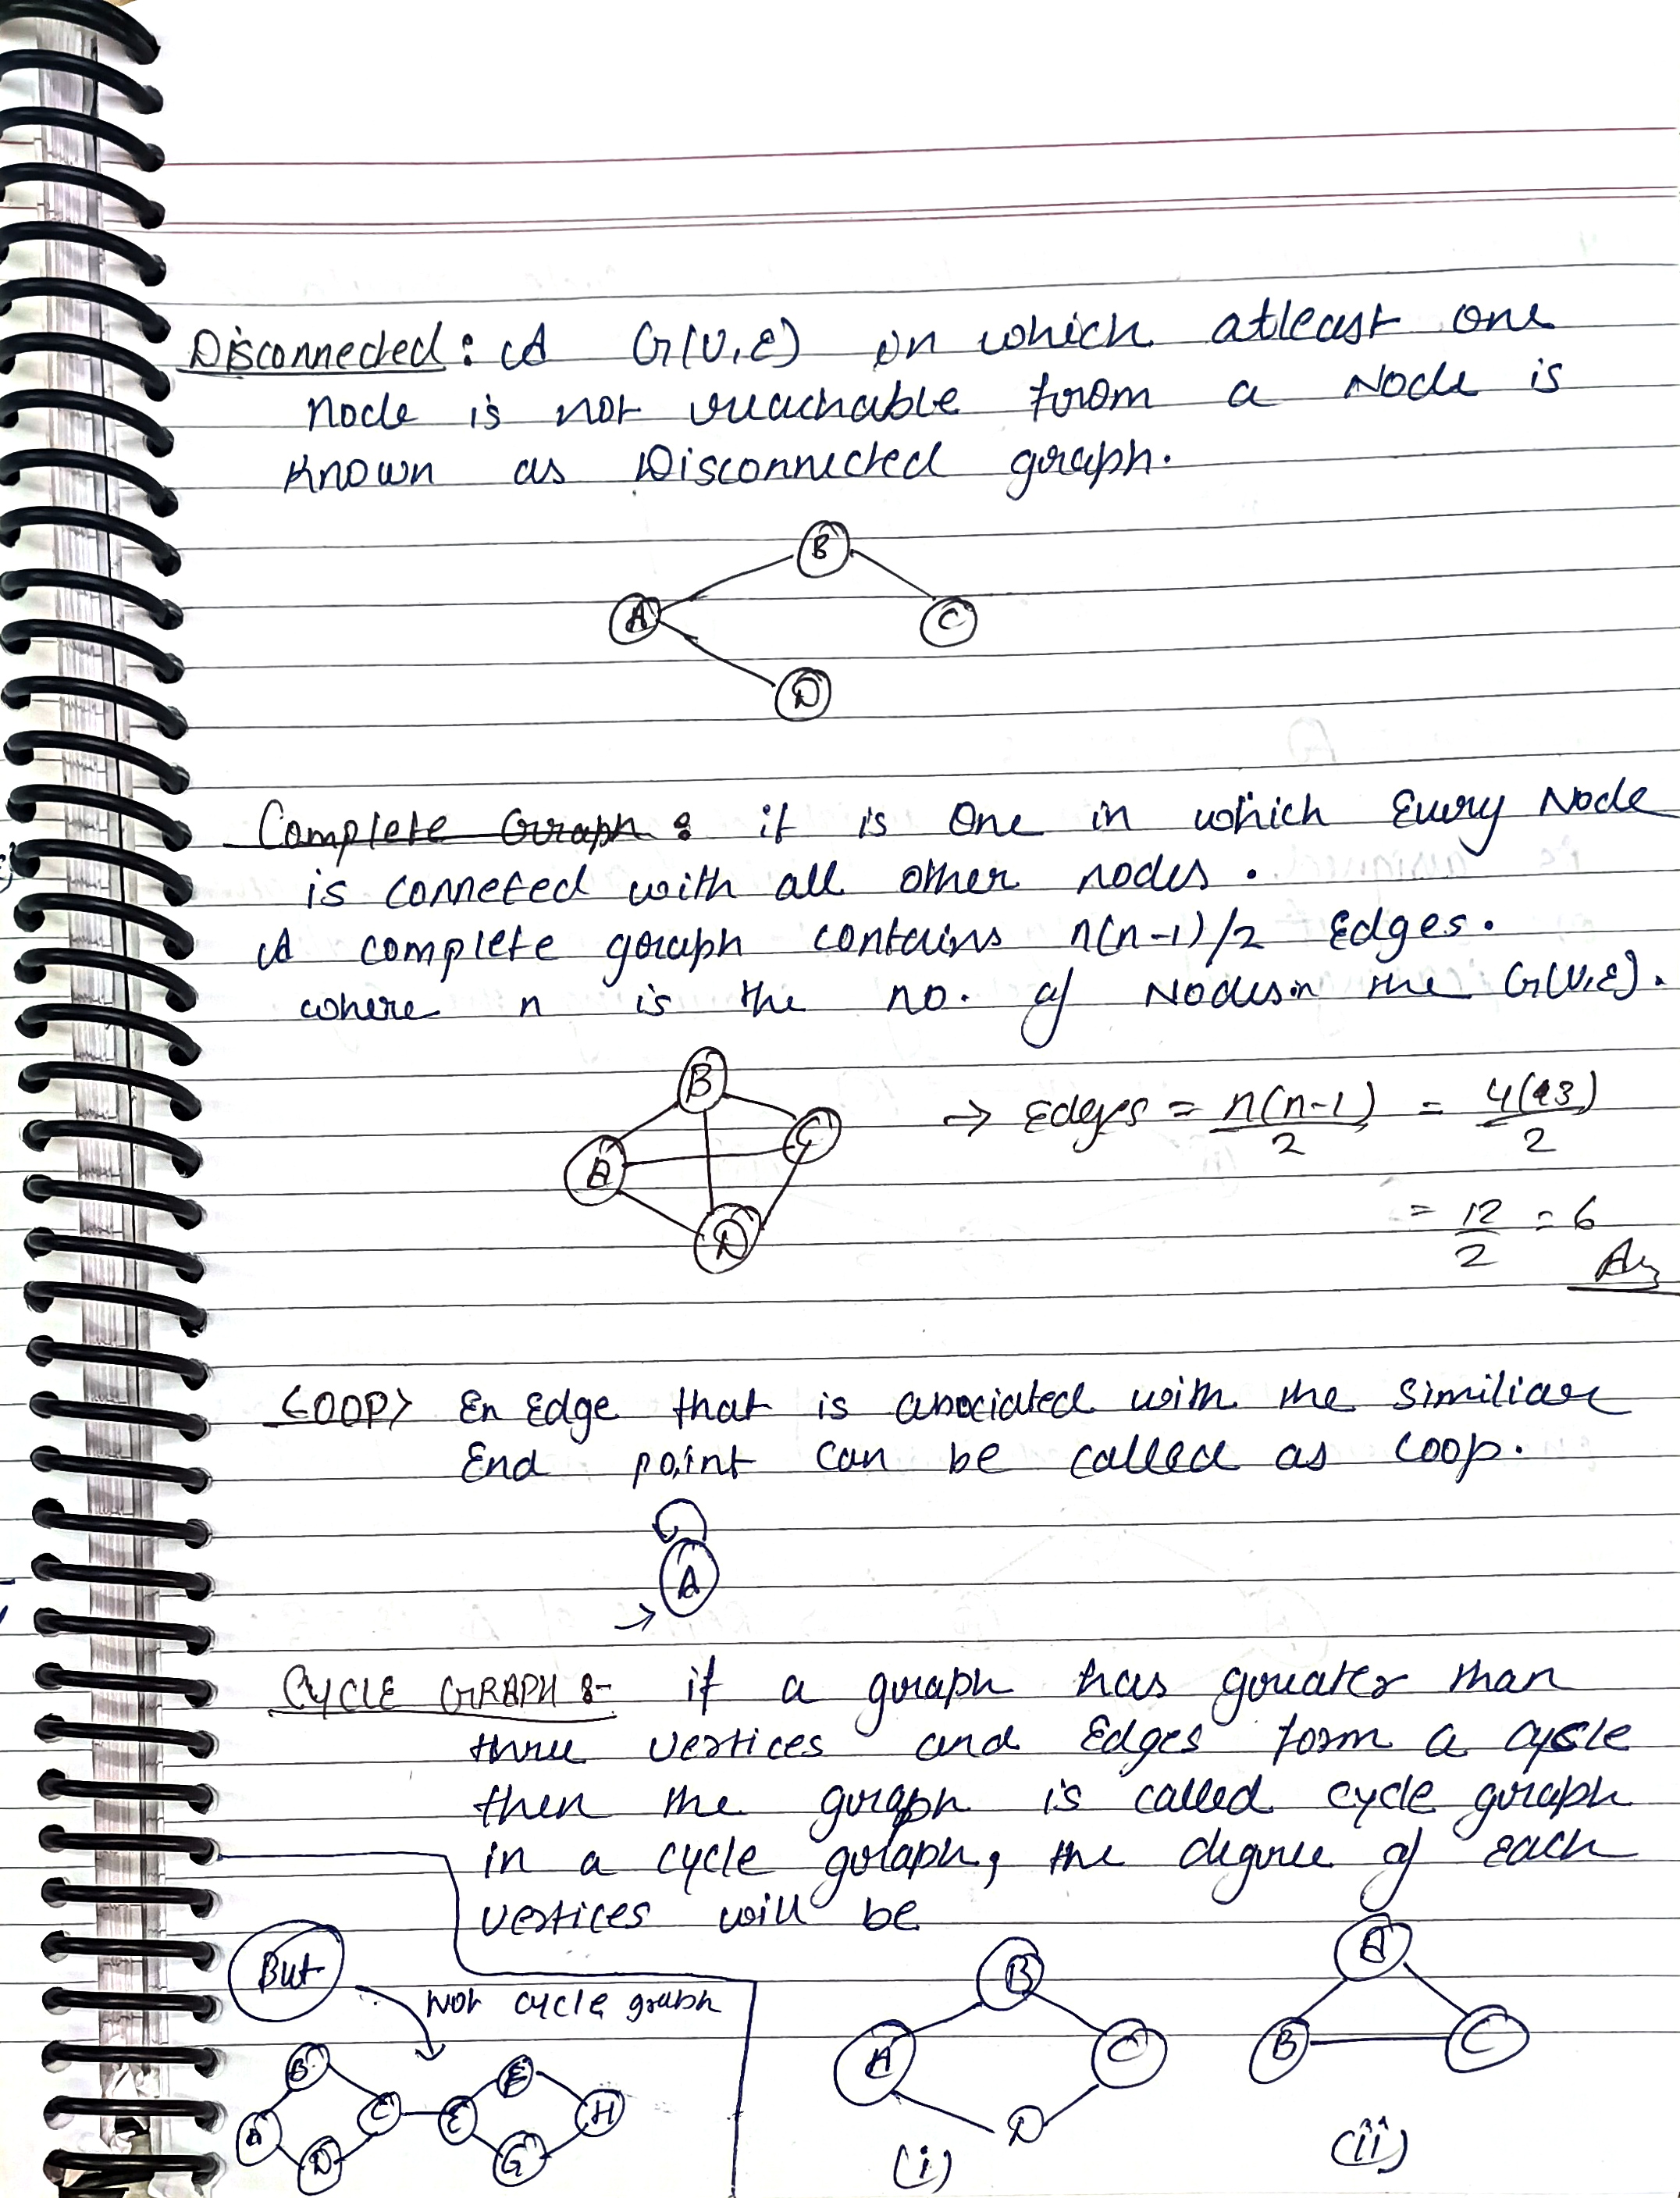 Disconnected: A G(V,E) in which atleast one
node is not reachable from a Node is
Known as Disconnected graph.
B
A
C
D
Complete Graph: it is One in which Every Node
is conneted with all other nodes.
A complete graph contains n(n-1)/2 Edges.
where n is the no. of Nodes in the G(V,E).
B
C
A
D
→ Edges = n(n-1)/2 = 4(3)/2
= 12/2 = 6
Ans
LOOP> En Edge that is associated with the Similiar
End point can be called as loop.
A
→
CYCLE GRAPH :- if a graph has greater than
three vertices and Edges form a cycle
then the graph is called cycle graph
in a cycle graph, the degree of each
vertices will be
But
Not cycle graph
B
A
C
D
E
E
H
G
B
A
C
D
(i)
A
B
C
(ii)